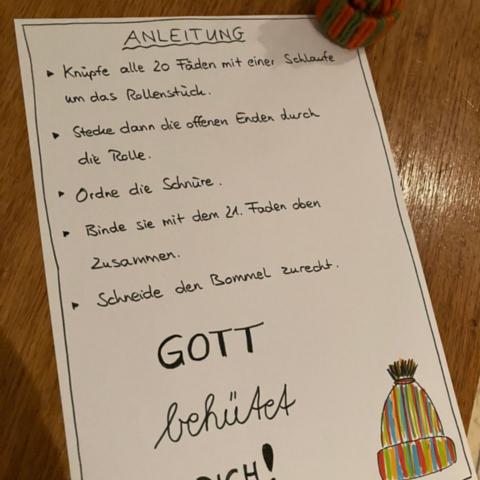 ANLEITUNG
▸ Knüpfe alle 20 Fäden mit einer Schlaufe
um das Rollenstück.
▸ Stecke dann die offenen Enden durch
die Rolle.
▸ Ordne die Schnüre.
▸ Binde sie mit dem 21. Faden oben
zusammen.
▸ Schneide den Bommel zurecht.
GOTT
behütet
DICH!